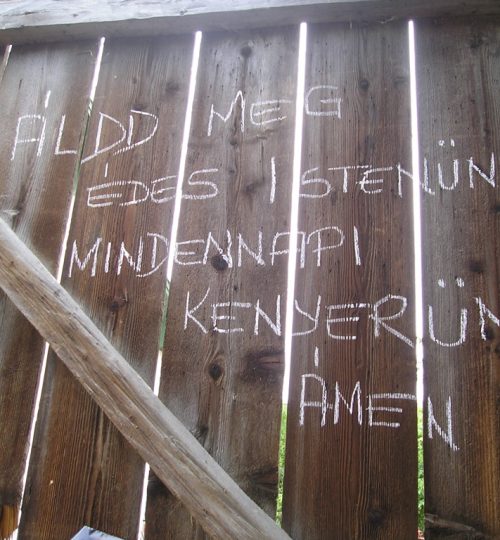 ÁLDD MEG
ÉDES ISTENÜN
MINDENNAPI
KENYERÜN
ÁMEN